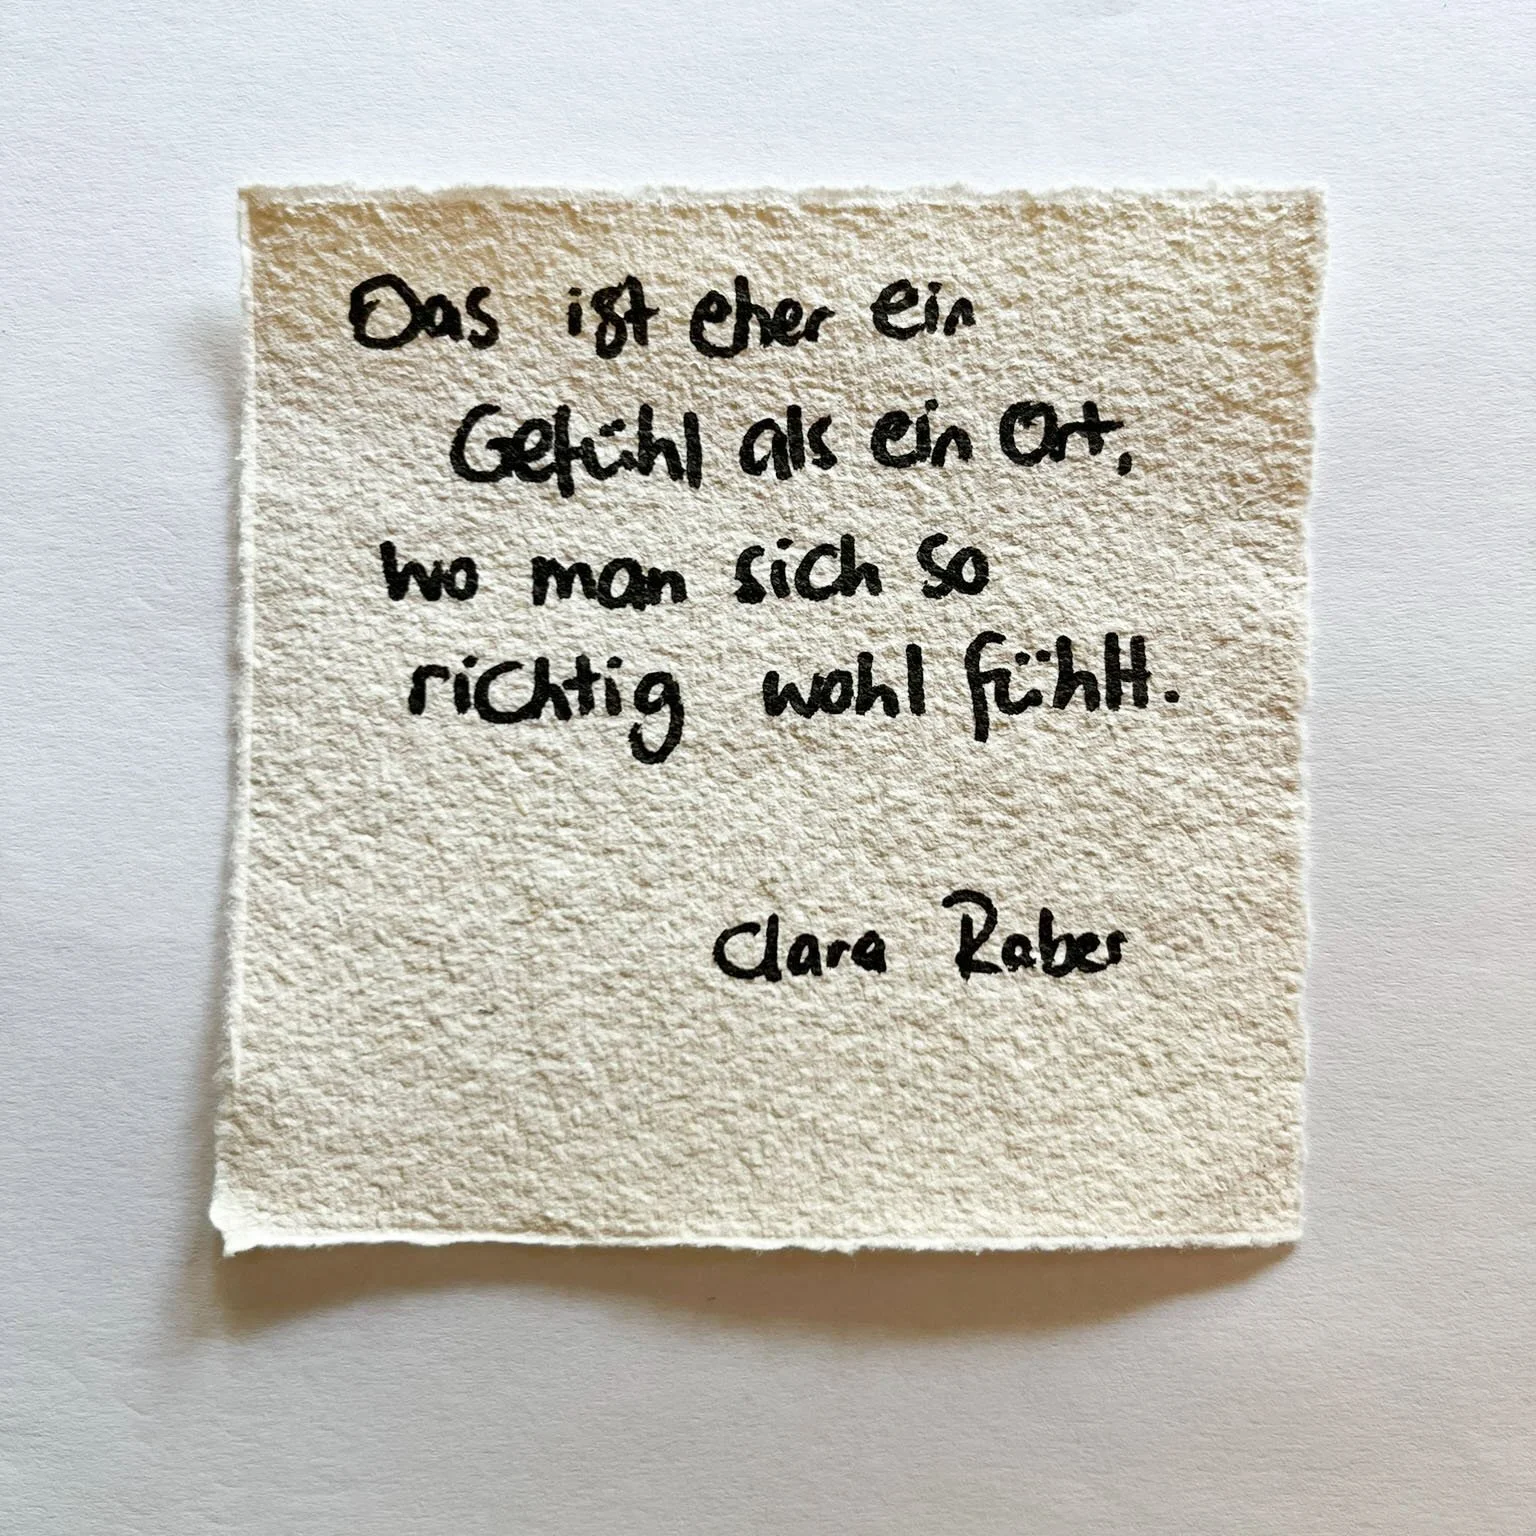 Das ist eher ein
Gefühl als ein Ort,
wo man sich so
richtig wohl fühlt.
Clara Raber